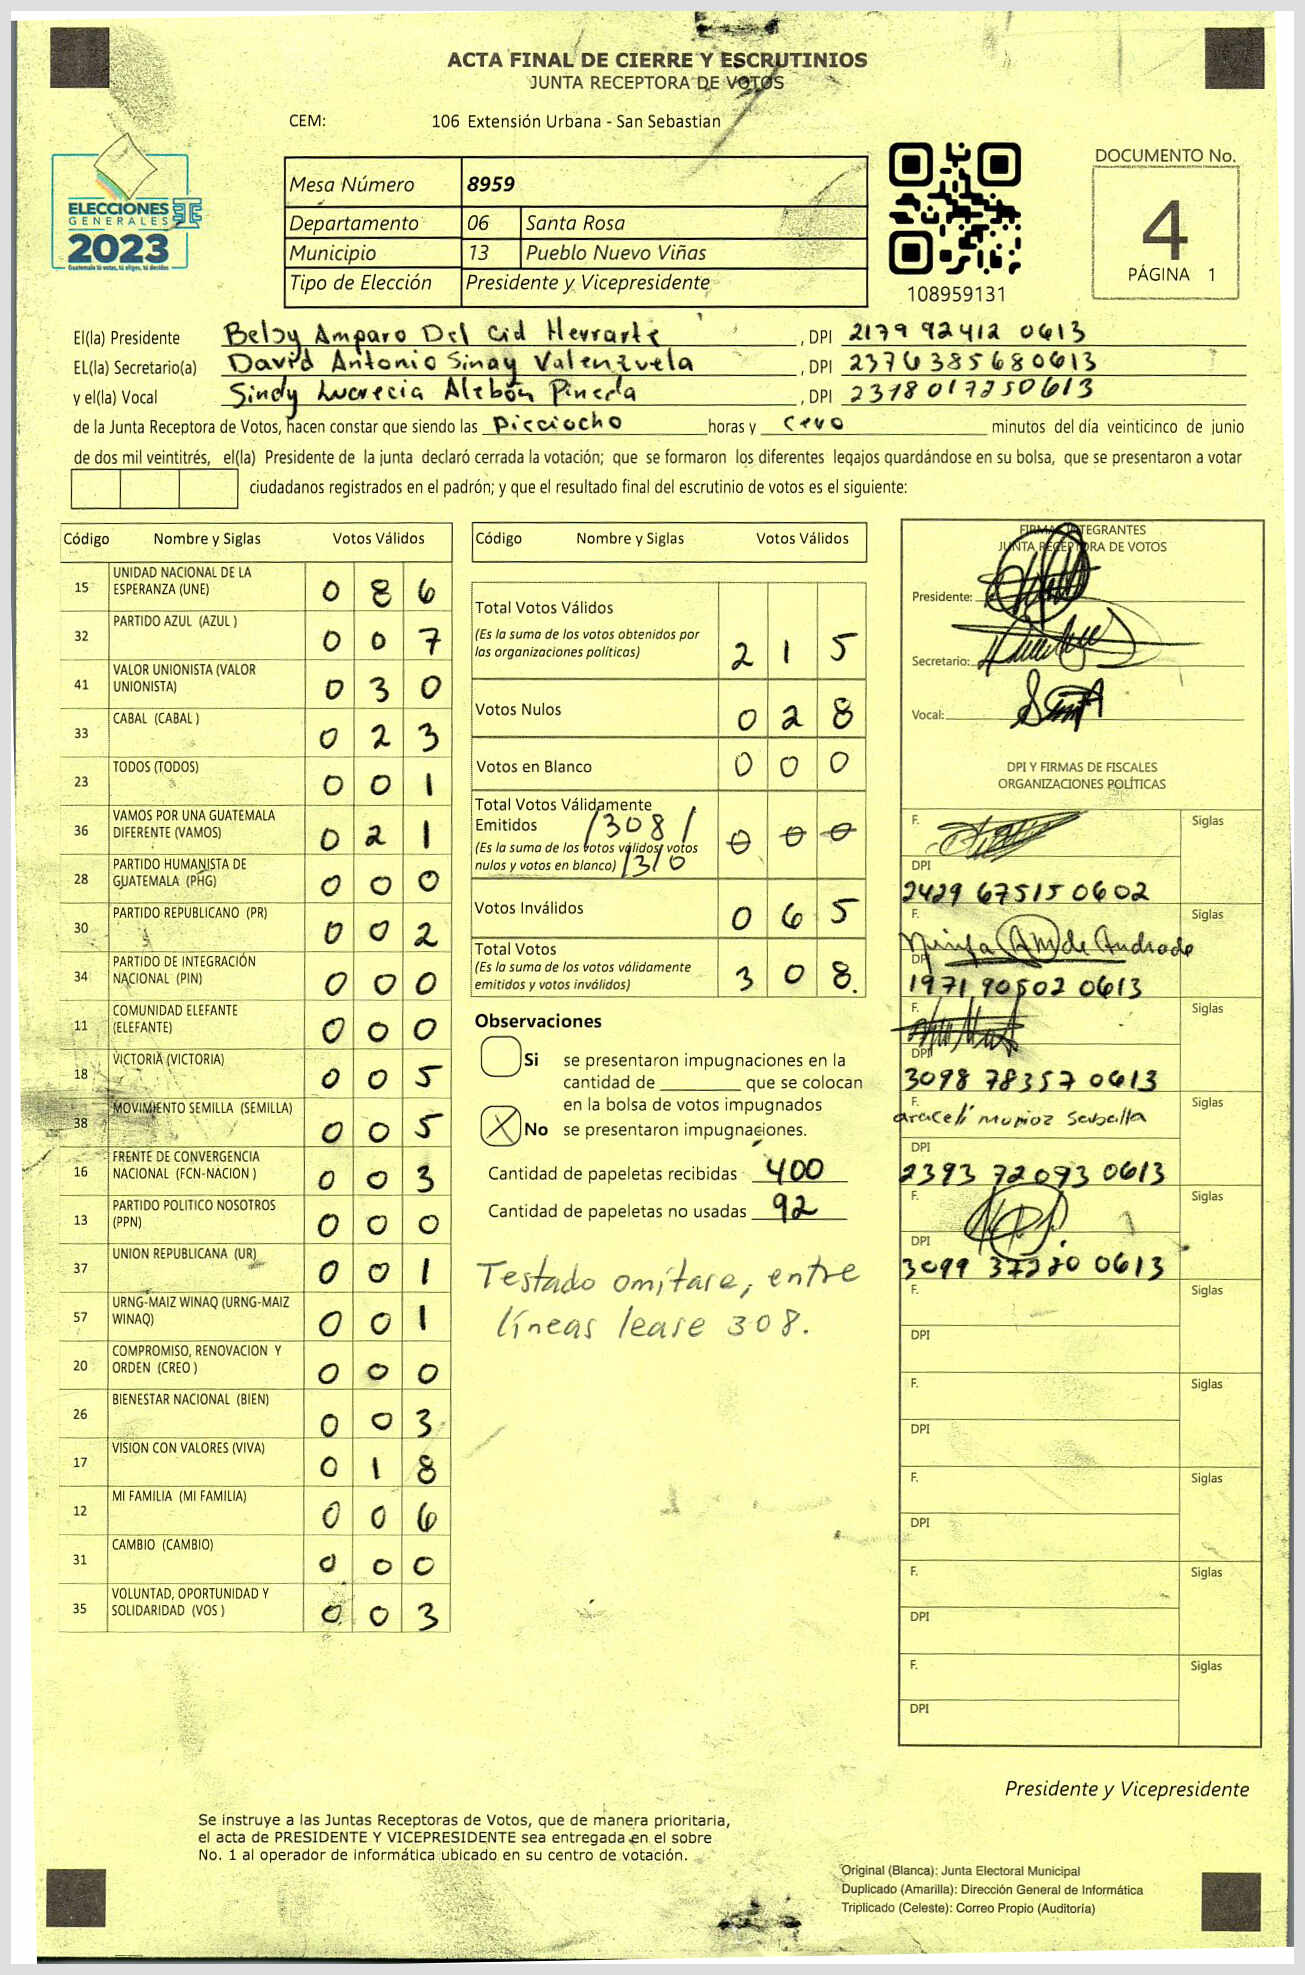 ACTA FINAL DE CIERRE Y ESCRUTINIOS
JUNTA RECEPTORA DE VOTOS
CEM: 106 Extensión Urbana - San Sebastian
ELECCIONES
GENERALES
2023
Guatemala tú votas, tú eliges, tú decides
Mesa Número 8959
Departamento 06 Santa Rosa
Municipio 13 Pueblo Nuevo Viñas
Tipo de Elección Presidente y Vicepresidente
108959131
DOCUMENTO No.
4
PÁGINA 1
El(la) Presidente Belsy Amparo Del Cid Herrarte, DPI 2179 92412 0613
EL(la) Secretario(a) David Antonio Sinay Valenzuela, DPI 2376385680613
y el(la) Vocal Sindy Lucrecia Alebón Pineda, DPI 2378017250613
de la Junta Receptora de Votos, hacen constar que siendo las Dieciocho horas y cero minutos del día veinticinco de junio
de dos mil veintitrés, el(la) Presidente de la junta declaró cerrada la votación; que se formaron los diferentes legajos guardándose en su bolsa, que se presentaron a votar
ciudadanos registrados en el padrón; y que el resultado final del escrutinio de votos es el siguiente:
Código Nombre y Siglas Votos Válidos
15 UNIDAD NACIONAL DE LA ESPERANZA (UNE) 0 8 6
32 PARTIDO AZUL (AZUL ) 0 0 7
41 VALOR UNIONISTA (VALOR UNIONISTA) 0 3 0
33 CABAL (CABAL ) 0 2 3
23 TODOS (TODOS) 0 0 1
36 VAMOS POR UNA GUATEMALA DIFERENTE (VAMOS) 0 2 1
28 PARTIDO HUMANISTA DE GUATEMALA (PHG) 0 0 0
30 PARTIDO REPUBLICANO (PR) 0 0 2
34 PARTIDO DE INTEGRACIÓN NACIONAL (PIN) 0 0 0
11 COMUNIDAD ELEFANTE (ELEFANTE) 0 0 0
18 VICTORIA (VICTORIA) 0 0 5
38 MOVIMIENTO SEMILLA (SEMILLA) 0 0 5
16 FRENTE DE CONVERGENCIA NACIONAL (FCN-NACION ) 0 0 3
13 PARTIDO POLITICO NOSOTROS (PPN) 0 0 0
37 UNION REPUBLICANA (UR) 0 0 1
57 URNG-MAIZ WINAQ (URNG-MAIZ WINAQ) 0 0 1
20 COMPROMISO, RENOVACION Y ORDEN (CREO ) 0 0 0
26 BIENESTAR NACIONAL (BIEN) 0 0 3
17 VISION CON VALORES (VIVA) 0 1 8
12 MI FAMILIA (MI FAMILIA) 0 0 6
31 CAMBIO (CAMBIO) 0 0 0
35 VOLUNTAD, OPORTUNIDAD Y SOLIDARIDAD (VOS ) 0 0 3
Código Nombre y Siglas Votos Válidos
Total Votos Válidos
(Es la suma de los votos obtenidos por
las organizaciones políticas) 2 1 5
Votos Nulos 0 2 8
Votos en Blanco 0 0 0
Total Votos Válidamente
Emitidos /308/ 0 0 0
(Es la suma de los votos válidos, votos
nulos y votos en blanco) /310
Votos Inválidos 0 6 5
Total Votos
(Es la suma de los votos válidamente
emitidos y votos inválidos) 3 0 8.
Observaciones
Si se presentaron impugnaciones en la
cantidad de ________ que se colocan
en la bolsa de votos impugnados
X No se presentaron impugnaciones.
Cantidad de papeletas recibidas 400
Cantidad de papeletas no usadas 92
Testado omítase, entre
líneas lease 308.
FIRMAS INTEGRANTES
JUNTA RECEPTORA DE VOTOS
Presidente:
Secretario:
Vocal:
DPI Y FIRMAS DE FISCALES
ORGANIZACIONES POLÍTICAS
F. Siglas
DPI
2429 67515 0602
F. Siglas
de Andrade
DPI
1971 90502 0613
F. Siglas
DPI
3098 78357 0613
F. Siglas
araceli muñoz
DPI
2393 72093 0613
F. Siglas
DPI
3099 37220 0613
F. Siglas
DPI
F. Siglas
DPI
F. Siglas
DPI
F. Siglas
DPI
F. Siglas
DPI
Presidente y Vicepresidente
Se instruye a las Juntas Receptoras de Votos, que de manera prioritaria,
el acta de PRESIDENTE Y VICEPRESIDENTE sea entregada en el sobre
No. 1 al operador de informática ubicado en su centro de votación.
Original (Blanca): Junta Electoral Municipal
Duplicado (Amarilla): Dirección General de Informática
Triplicado (Celeste): Correo Propio (Auditoría)